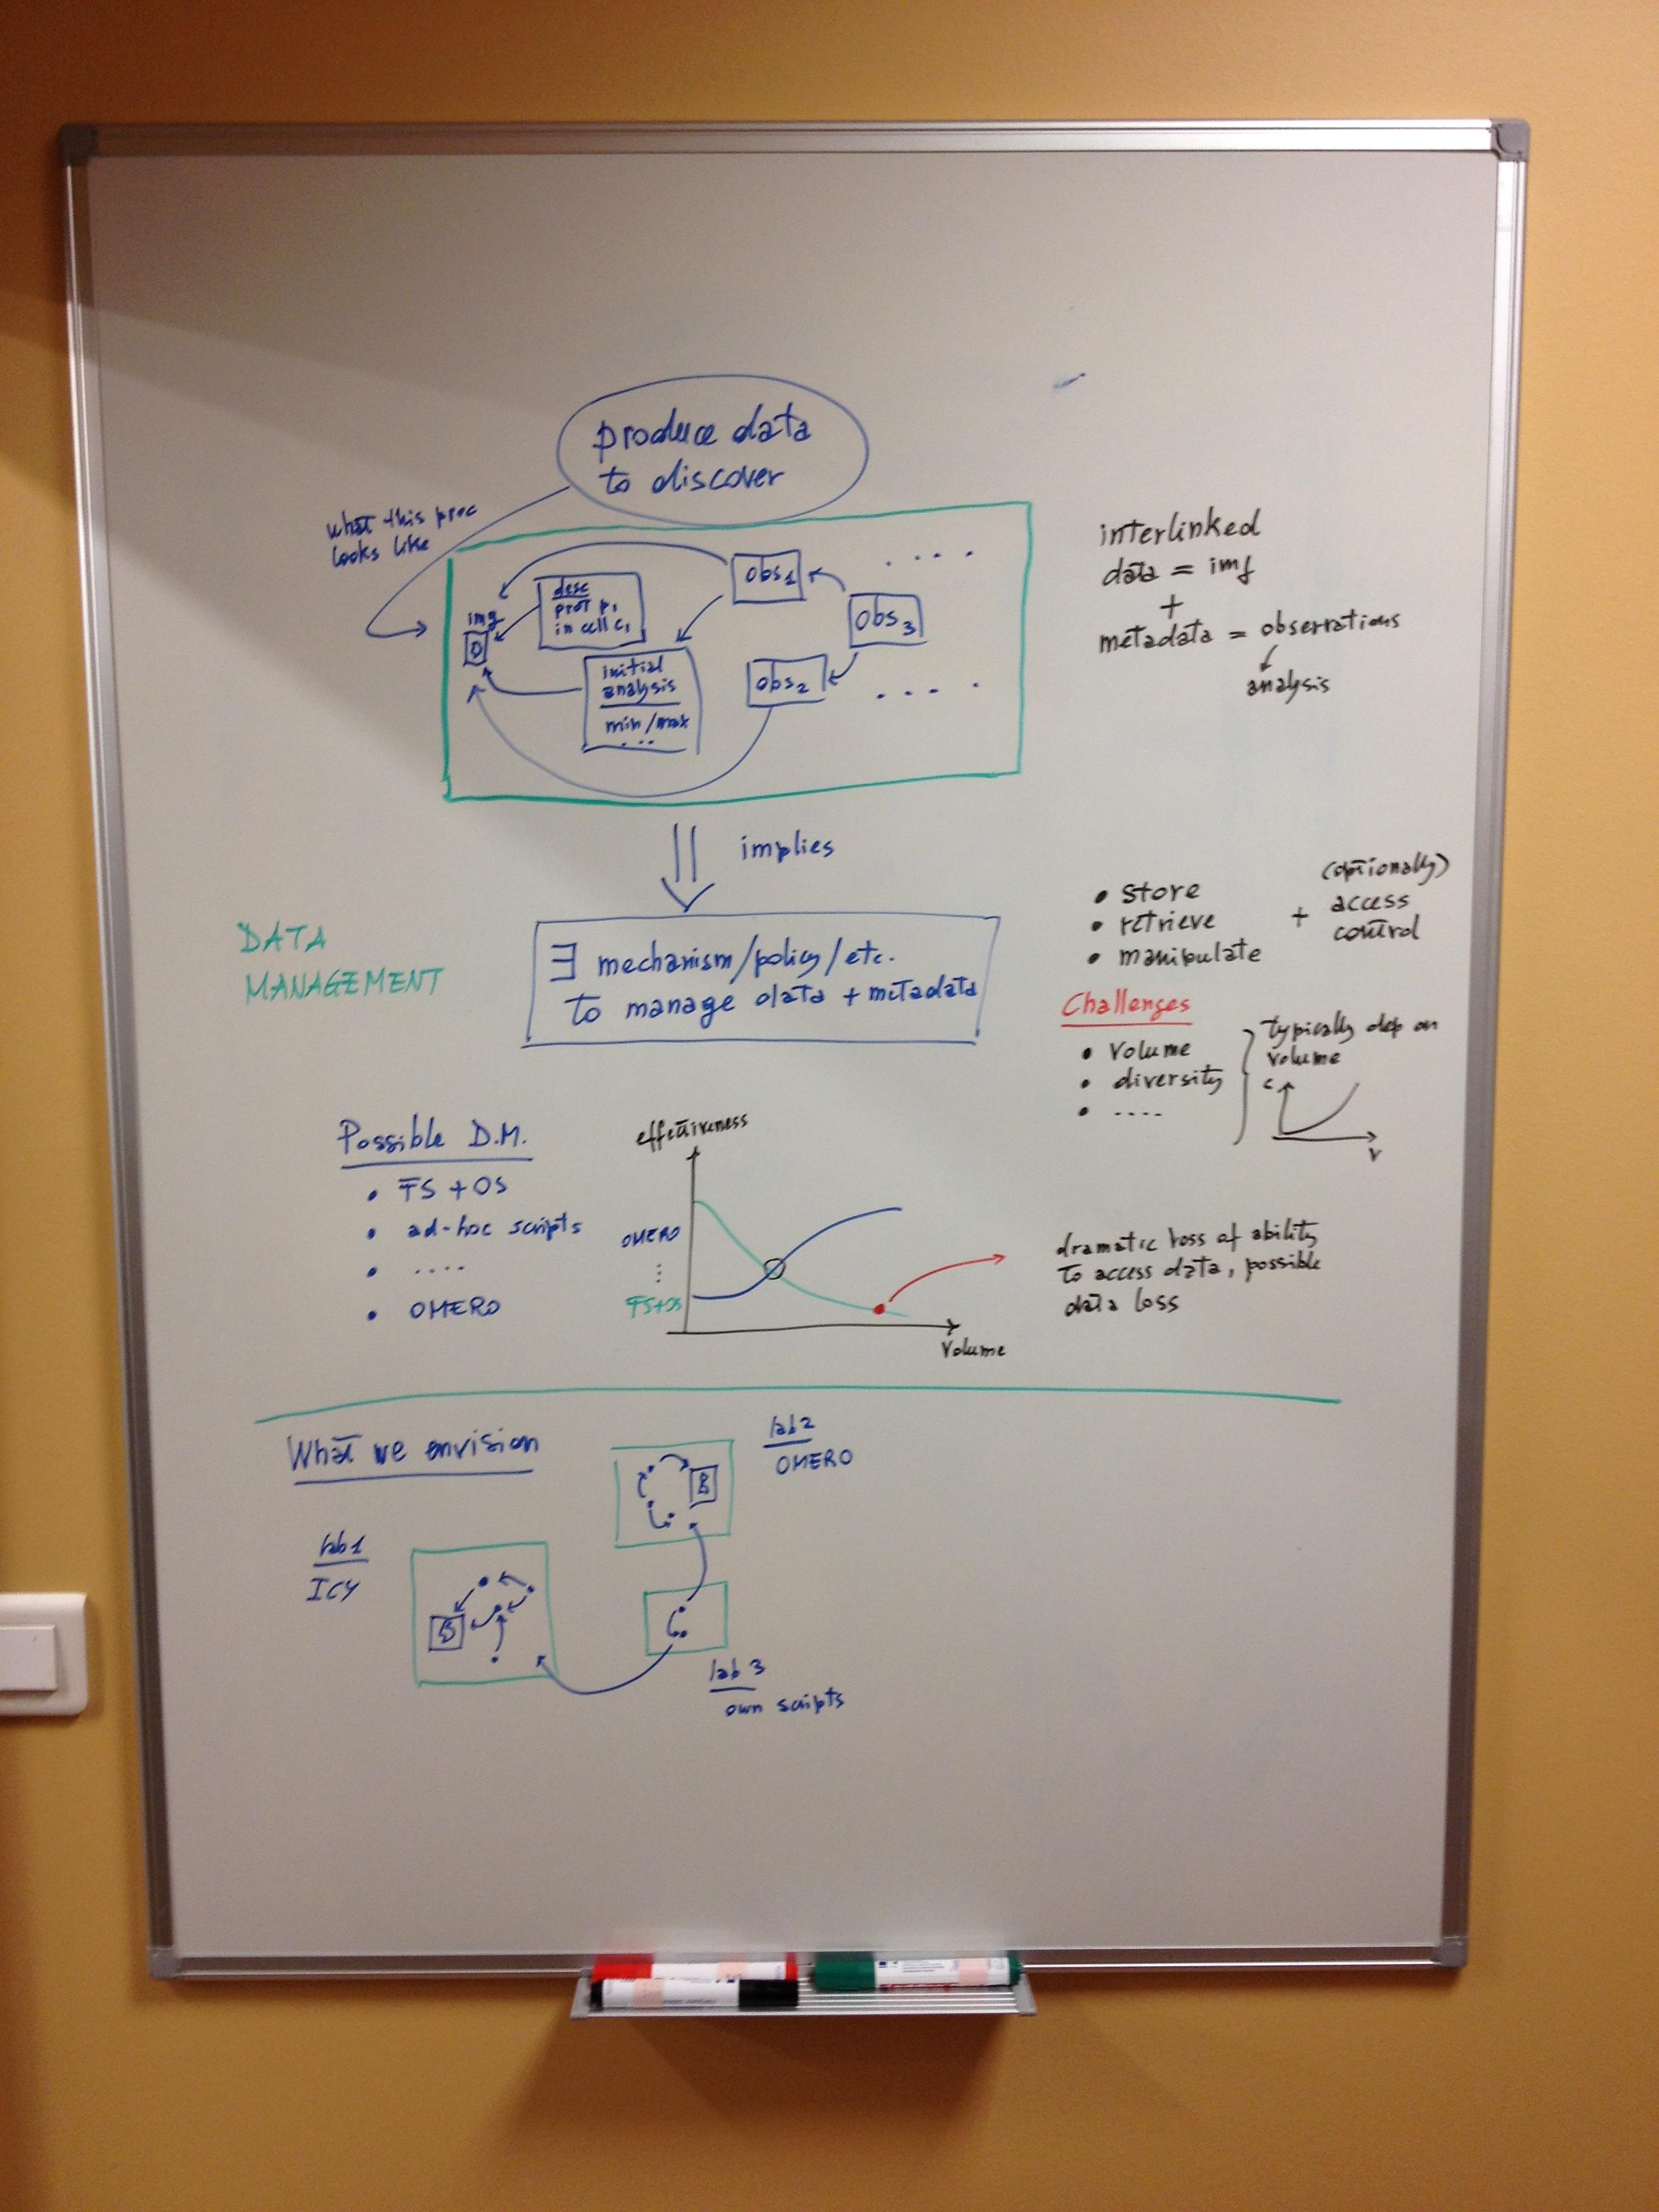 produce data
to discover
what this proc
looks like
img
desc
prot p1
in cell c1
initial
analysis
min/max
...
obs1
obs3
obs2
...
....
interlinked
data = img
+
metadata = observations
analysis
implies
DATA
MANAGEMENT
∃ mechanism/policy/etc.
to manage data + metadata
• store
• retrieve
• manipulate
+
(optionally)
access
control
Challenges
• volume
• diversity
• ....
typically dep on
volume
c
v
Possible D.M.
• FS + OS
• ad-hoc scripts
• ....
• OMERO
effectiveness
OMERO
...
FS+OS
Volume
dramatic loss of ability
to access data, possible
data loss
What we envision
lab2
OMERO
lab1
ICY
lab 3
own scripts